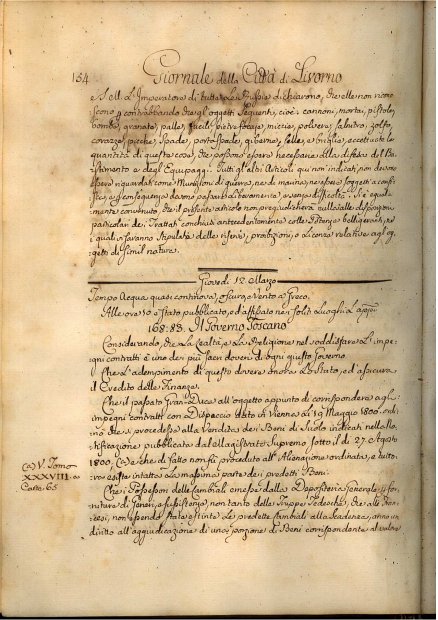 154 Giornale della Città di Livorno
e S. M. L'Imperatore di tutte le Russie dichiarono, che elle non ricono
scono p contrabbando che gl'oggetti seguenti, cioè: cannoni, mortai, pistole,
bombe, granate, palle, fucili, pietre focaje, miccie, polvere, salnitro, zolfo,
corazze, picche, spade, portaspade, giberne, selle, e briglie, eccettuate le
quantità di queste cose, che possono essere necessarie alla difesa del Ba
stimento e degl'Equipaggi. Tutti gl'altri Articoli qui non indicati, non devono
essere riguardati come Munizioni di guerra, ne di marina, ne essere soggetti a confi
sca, e p conseguenza devono passare liberamente, e senza difficoltà. Si è egual
mente convenuto, che il presente articolo non pregiudicherà nulla alle disposizioni
particolari dei Trattati conchiusi antecedentemente colle Potenze belligeranti, ne
i quali si saranno stipulate delle riserve, proibizioni, o licenze relative agl'og
getti di simil natura.
Giovedì 12 Marzo
Tempo Acqua quasi continova, oscuro e Vento a Greco.
Alle ore 10 è stato pubblicato, ed affisso nei soliti Luoghi
168:83. Il Governo Toscano
Considerando, che la Lealtà, e la Religione nel soddisfare l'impe
gni contratti è uno dei più sacri doveri di ogni giusto Governo.
Che l'adempimento di questo dovere onora lo Stato, ed assicura
il Credito delle Finanze.
Che il passato Gran-Duca all'oggetto appunto di corrispondere agl'
impegni contratti con Dispaccio dato di Vienna al 19 Maggio 1800. ordi
nò che si procedesse alla Vendita dei Beni di Suolo indicati nella No
tificazione pubblicata dal Magistrato Supremo sotto il dì 27 Agosto
1800. (a) e che di fatto non fù proceduto all'Alienazione ordinata, e tutto
ra esiste intatta la massima parte dei predetti Beni.
(a) V. Tomo
XXXVIII. a
Carte 65
Che i Possessori delle cambiali emesse dalla Depositeria Generale p for
nitura di Generi, e sussistenza, non tanto delle Truppe Tedesche, che alle Fran
cesi, non essendo state estinte le predette cambiali alla scadenza, anno un
diritto all'aggiudicazione di una porzione di Beni corrispondente al valore